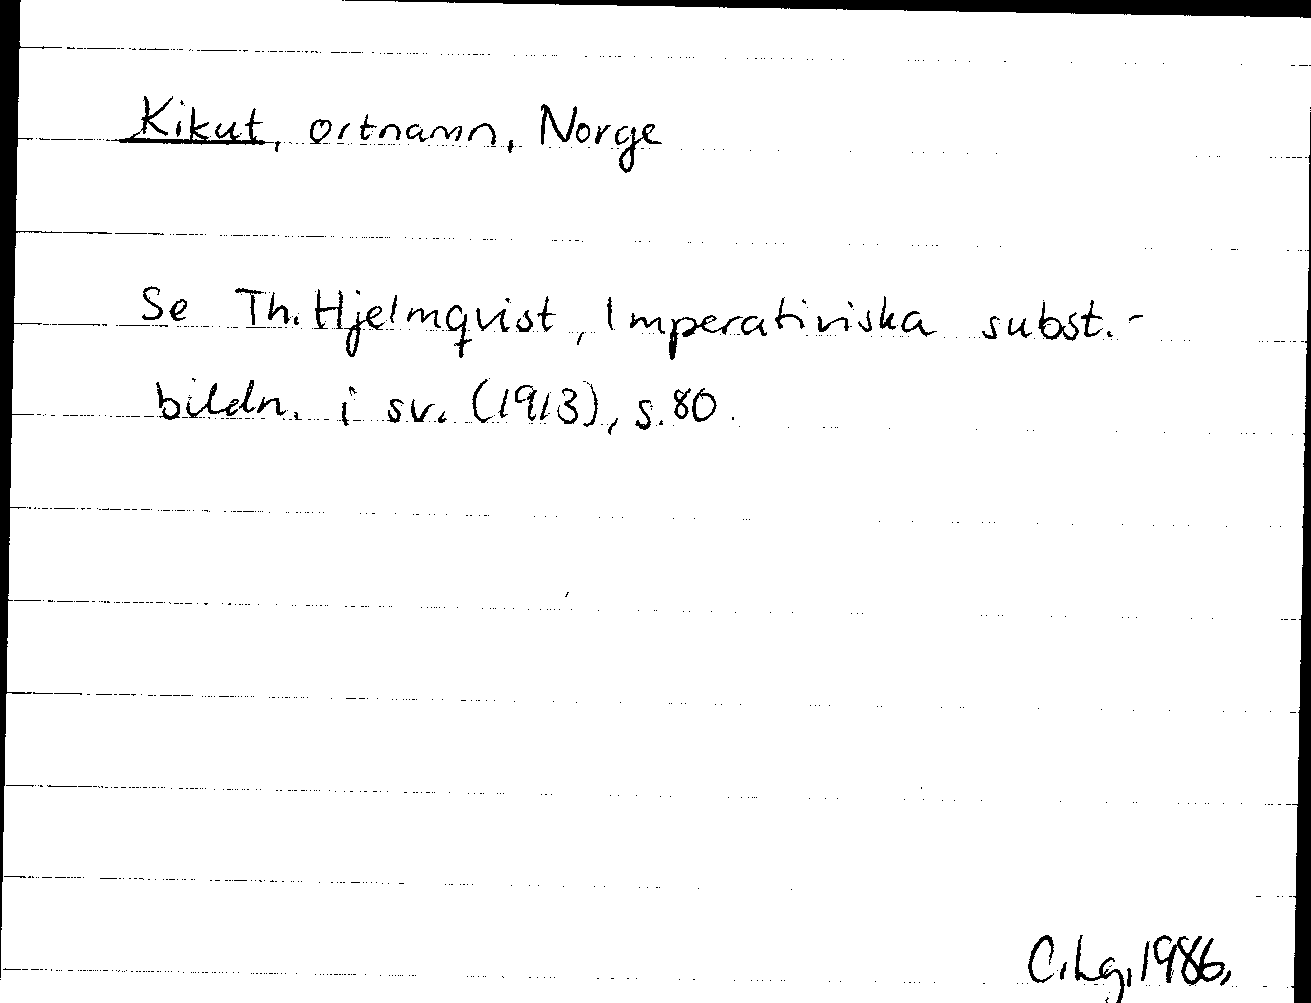 Kikut, ortnamn, Norge
Se Th. Hjelmqvist, Imperativiska subst.-
bildn. i sv. (1913), s. 80.
C. Lg, 1986,